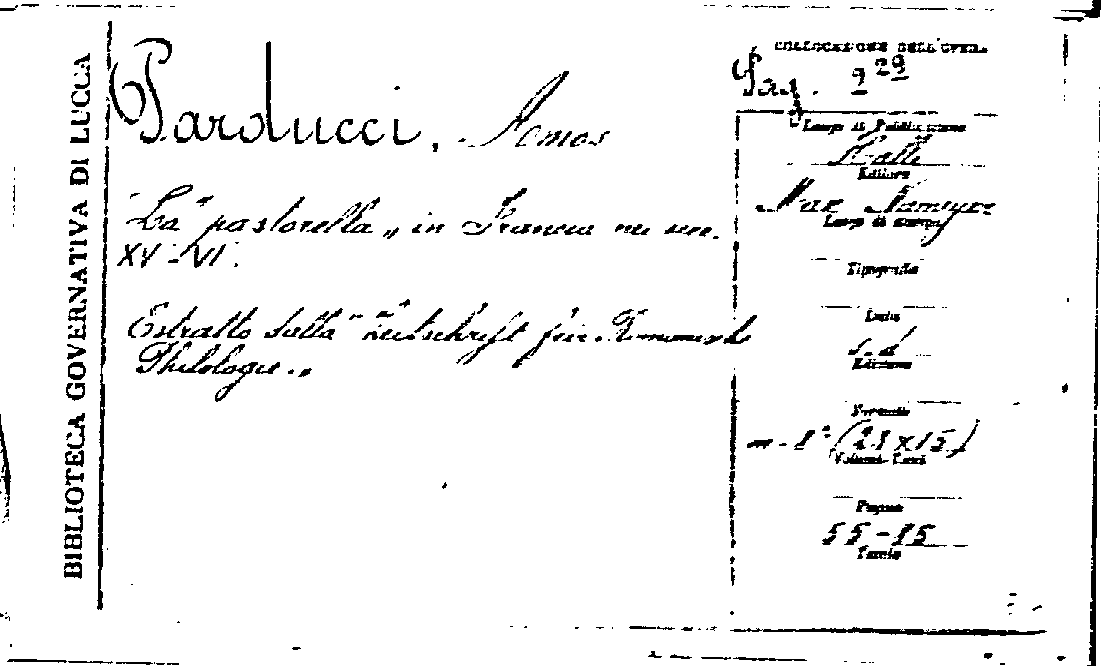 BIBLIOTECA GOVERNATIVA DI LUCCA
Parducci, Amos
"La "pastorella„ in Francia nei sec.
XV-VI.
Estratto dalla "Zeitschrift für Romanische
Philologie.„
COLLOCAZIONE DELL'OPERA
229
Luogo di Pubblicazione
Halle
Editore
Max Niemeyer
Luogo di stampa
Tipografia
Data
s.d
Edizione
Formato
m-8° (23x15)
Volumi-Tomi
Pagine
55-75
Tavole